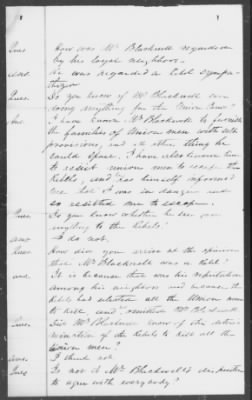 Ques How was Mr Blackwell regarded
by his loyal neighbors.
Ans He was regarded a Rebel sympa
thizer
Ques Do you know if Mr Blackwell ever
doing anything for the Union Army?
Ans I have known Mr Blackwell to furnish
the families of Union men with
provisions, and other thing he
could spare. I have also known him
to assist union men to escape the
Rebels, and he himself informed
me that I was in danger and
so assisted me to escape.
Ques Do you know whether he ever gave
anything to the Rebels?
Ans I do not.
Ques How did you arrive at the opinion
that Mr Blackwell was a Rebel?
Ans It is because that was his reputation
among his neighbors and because the
Rebels had all the Union men
to and Mr Blackwell
Ques Did Mr Blackwell know of the deter
mination of the Rebels to kill all the
Union men?
Ans I think not.
Ques Is not Mr Blackwell's
to agree with everybody?